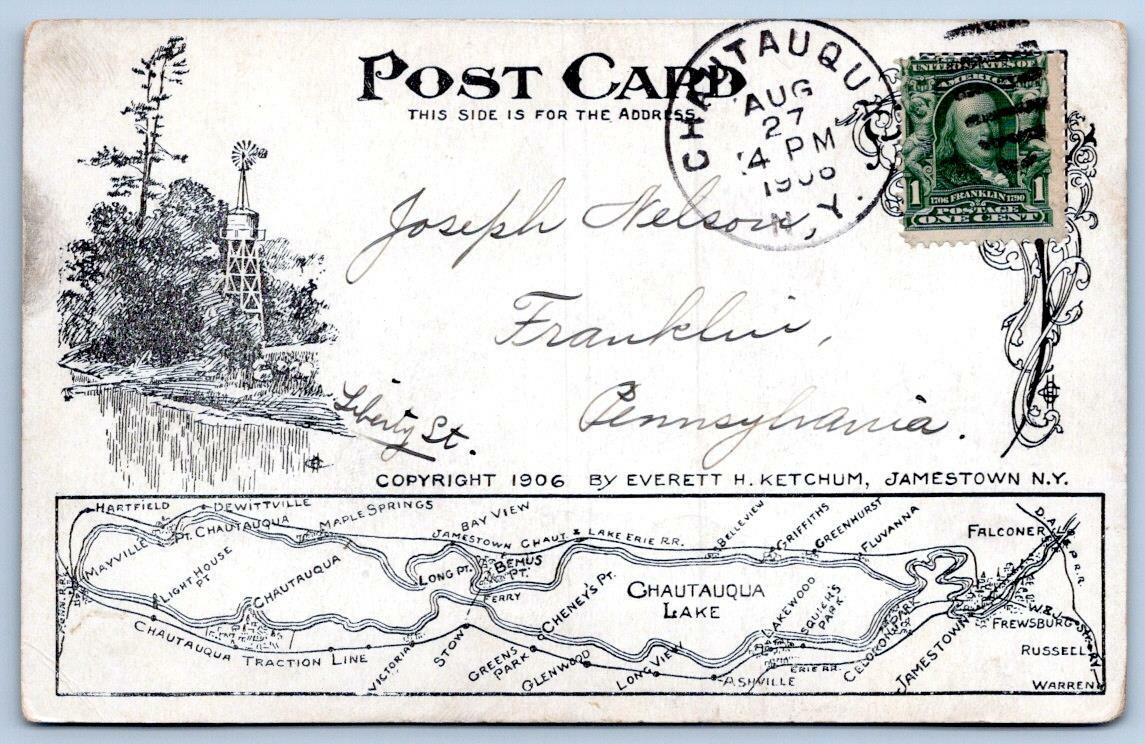 POST CARD
THIS SIDE IS FOR THE ADDRESS.
CHAUTAUQU
AUG
27
4 PM
1906
N.Y.
UNITED STATES OF
AMERICA
1 1706 FRANKLIN 1790 1
POSTAGE
ONE CENT
Joseph Nelson,
Franklin,
Pennsylvania.
Liberty St.
COPYRIGHT 1906 BY EVERETT H. KETCHUM, JAMESTOWN N.Y.
HARTFIELD
DEWITTVILLE
MAPLE SPRINGS
BAY VIEW
JAMESTOWN CHAUT & LAKE ERIE RR.
BELLEVIEW
GRIFFITHS
GREENHURST
FLUVANNA
FALCONER
MAYVILLE
PT. CHAUTAUQUA
LIGHT HOUSE PT
CHAUTAUQUA
LONG PT.
BEMUS PT.
FERRY
CHENEY'S PT.
CHAUTAUQUA
LAKE
LAKEWOOD
SQUIER'S PARK
CELORON PARK
JAMESTOWN
FREWSBURG
RUSSELL
WARREN
CHAUTAUQUA TRACTION LINE
VICTORIA
STOW
GREENS PARK
GLENWOOD
LONG VIEW
ASHVILLE
ERIE RR.